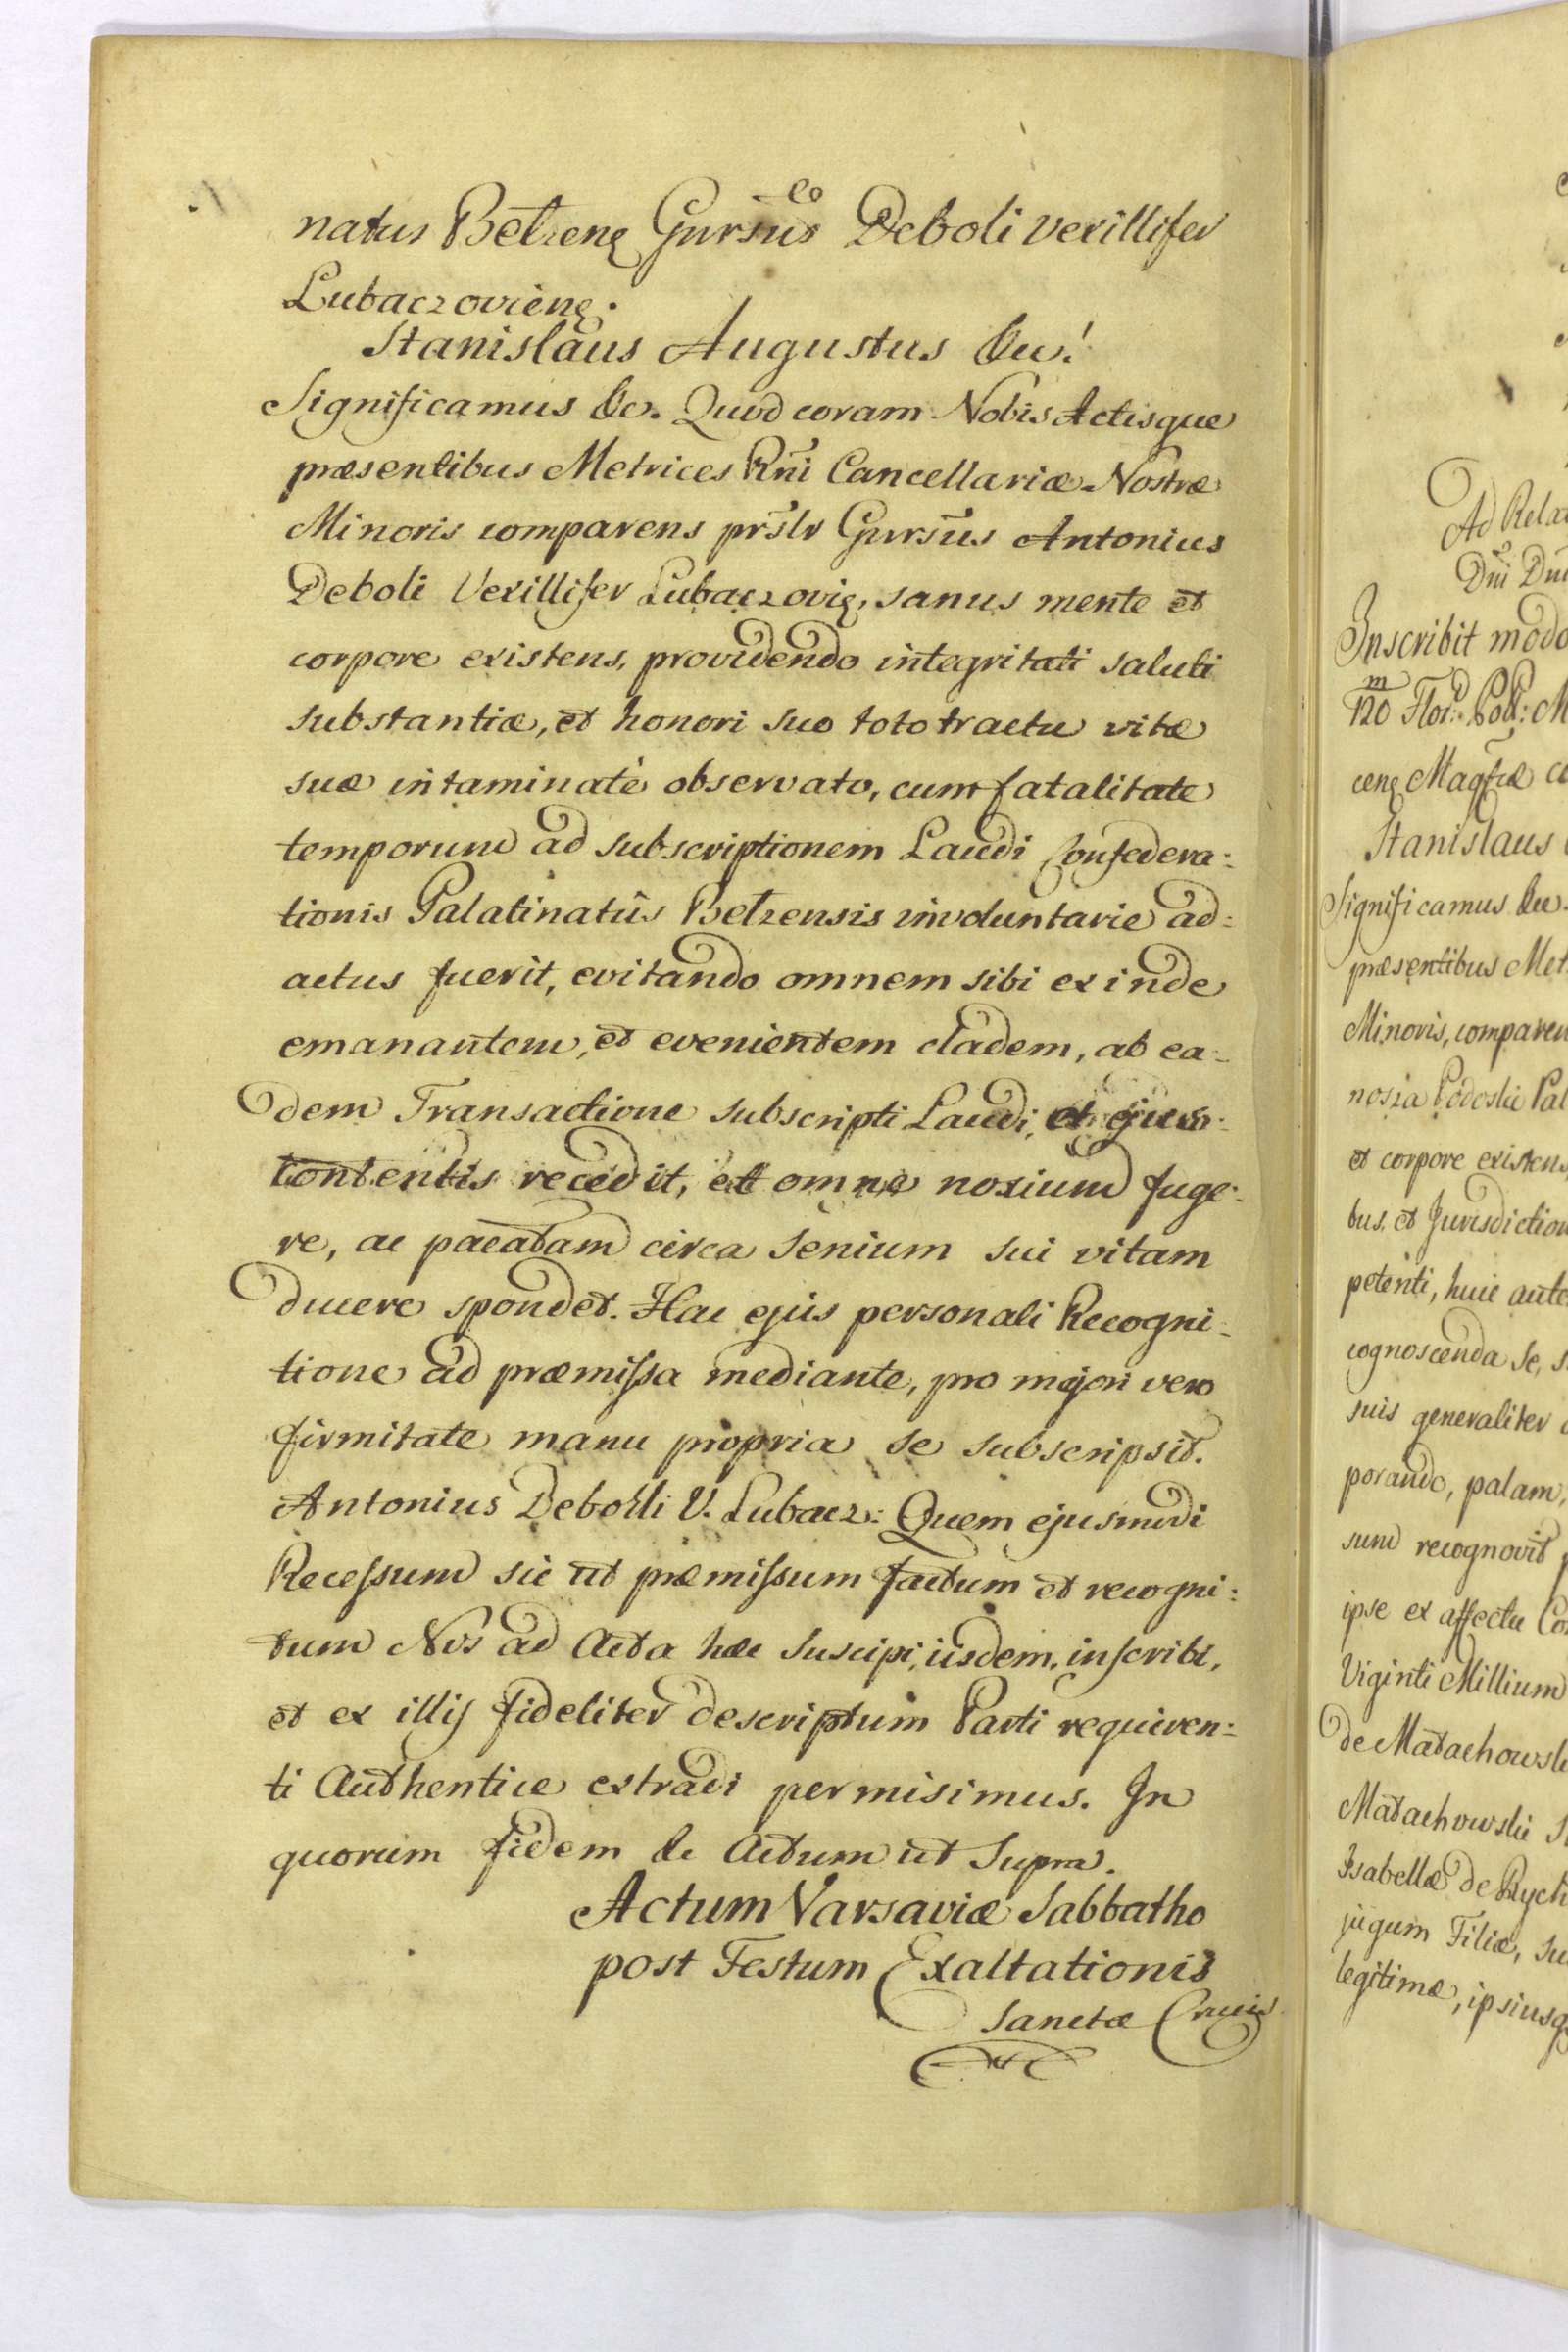 natus Belzenę Gnrsus eo Deboli Vexillifer
Lubaczoviènę.
Stanislaus Augustus &c.
Significamus &c. Quod coram Nobis Actisque
præsentibus Metrices Rñi Cancellariæ Nostræ
Minoris comparens prslr Gnrsus Antonius
Deboli Vexillifer Lubaczovię, sanus mente et
corpore existens, providendo integritati saluti
substantiæ, et honori suo toto tractu vitæ
suæ intaminatè observato, cum fatalitate
temporum ad subscriptionem Laudi Confedera:
tionis Palatinatûs Belzensis involuntarie ad:
actus fuerit, evitando omnem sibi exinde
emanantem, et evenientem cladem, ab ea:
dem Transactione subscripti Laudi, et ejus
contentis recedit, et omne noxium fuge:
re, ac pacatam circa senium sui vitam
ducere spondet. Hac ejus personali Recogni:
tione ad præmissa mediante, pro majori vero
firmitate manu propria se subscripsit.
Antonius Debolli V. Lubacz: Quem ejusmodi
Recessum sic ut præmissum factum et recogni:
tum Nos ad Acta hæc suscipi, iisdem, inscribi,
et ex illis fideliter descriptum Parti requiren:
ti Authentice extradi permisimus. In
quorum fidem &c Actum ut Supra.
Actum Varsaviæ Sabbatho
post Festum Exaltationis
Sanctæ Crucis
Ad Rela
Dñi Dni
Inscribit modo
m
120 Flor: Pol: M
cenę Magfcæ
Stanislaus
Significamus &c.
præsentibus Met
Minoris, comparen
nosza Podoski Pal
et corpore existens
bus, et Jurisdiction
petenti, huic aute
cognoscenda se, s
suis generaliter
porando, palam,
sum recognovit
ipse ex affectu Co
Viginti Millium
de Małachowsk
Małachowski S
Isabellæ de Rych
jugum Filiæ, su
legitimæ, ipsiusq